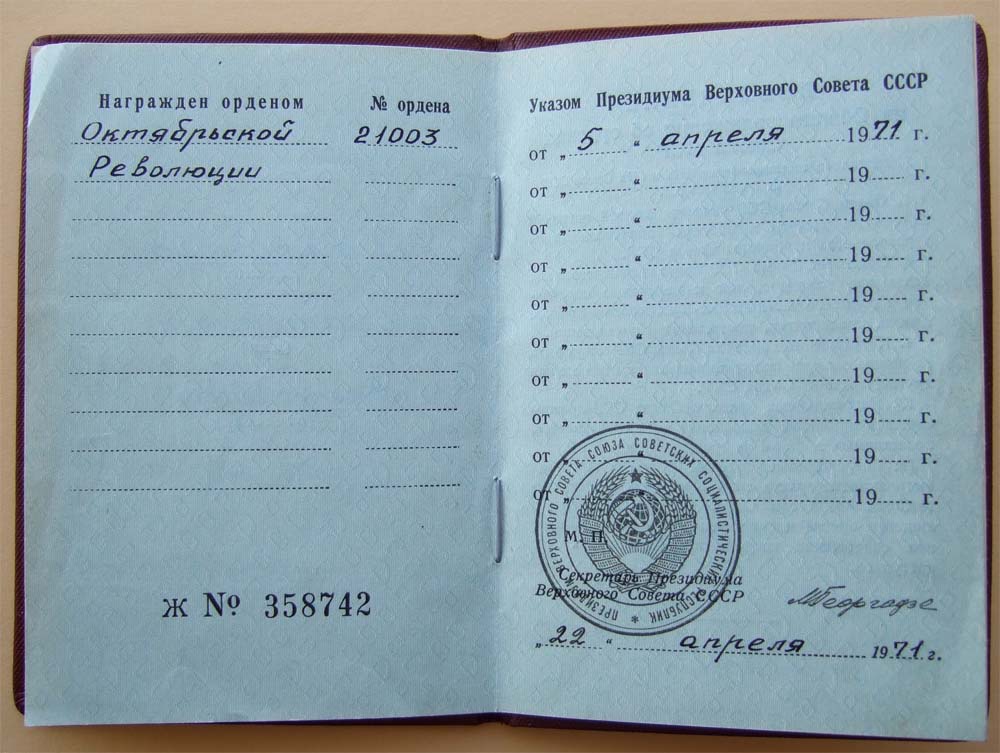 Награжден орденом
№ ордена
Октябрьской
21003
Революции
Ж № 358742
Указом Президиума Верховного Совета СССР
от „ 5 “ апреля 1971 г.
от „ “ 19 г.
от „ “ 19 г.
от „ “ 19 г.
от „ “ 19 г.
от „ “ 19 г.
от „ “ 19 г.
от „ “ 19 г.
от „ “ 19 г.
от „ “ 19 г.
ПРЕЗИДИУМ ВЕРХОВНОГО СОВЕТА СОЮЗА СОВЕТСКИХ СОЦИАЛИСТИЧЕСКИХ РЕСПУБЛИК *
М. П.
Секретарь Президиума
Верховного Совета СССР
МГеоргадзе
„ 22 “ апреля 1971 г.